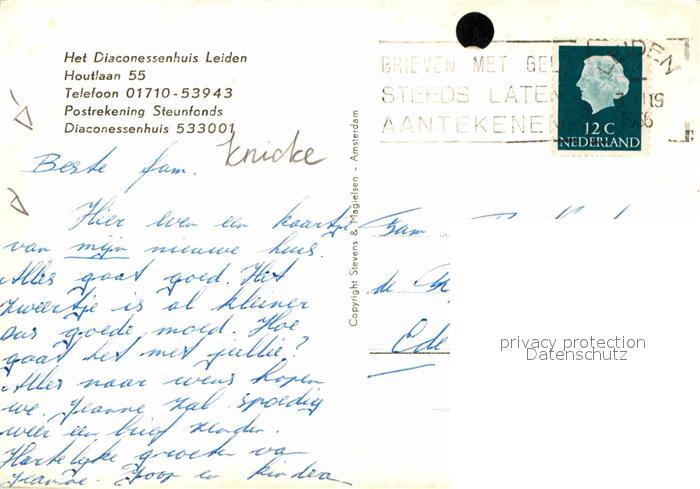 Het Diaconessenhuis Leiden
Houtlaan 55
Telefoon 01710-53943
Postrekening Steunfonds
Diaconessenhuis 533001
knicke
Beste fam.
Hier even een kaartje
van mijn nieuwe huis.
Alles gaat goed. Het
zweertje is al kleiner
dus goede moed. Hoe
gaat het met jullie?
Alles naar wens hopen
we. Jeanne zal spoedig
weer een brief zenden.
Hartelijke groeten van
Jeanne. Joop en kinderen
Copyright Stevens & Magielsen - Amsterdam
BRIEVEN MET GELD
STEEDS LATEN
AANTEKENEN
LEIDEN
1966
12 C
NEDERLAND
Fam
de
Ede
privacy protection
Datenschutz